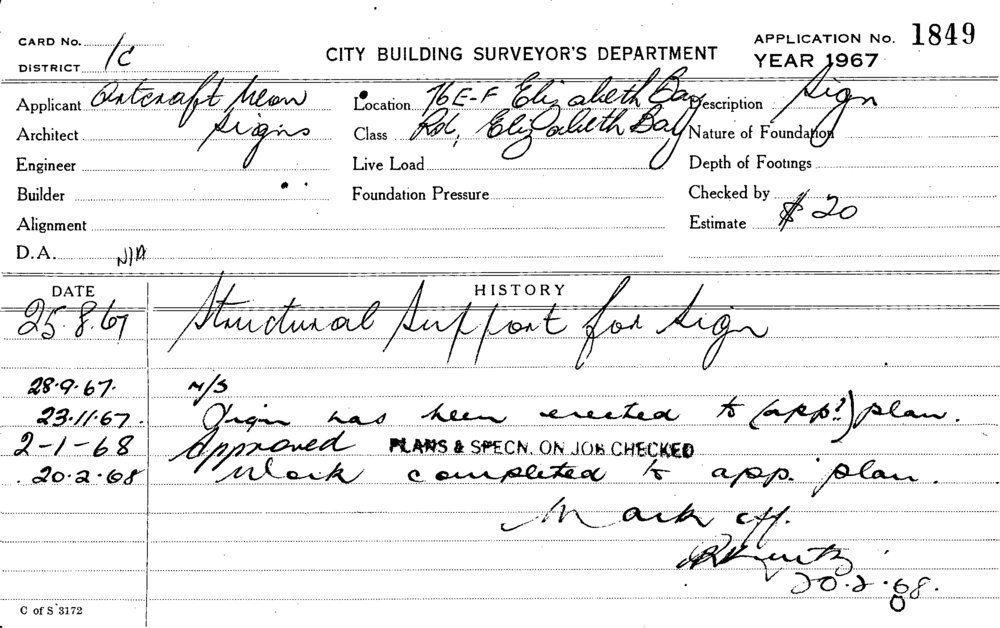 CARD No. 1C
DISTRICT
CITY BUILDING SURVEYOR'S DEPARTMENT
APPLICATION No. 1849
YEAR 1967
Applicant Artcraft Neon
Architect Signs
Engineer
Builder
Alignment
D.A. N/A
Location 76E-F Elizabeth Bay
Class Rd, Elizabeth Bay
Live Load
Foundation Pressure
Description Sign
Nature of Foundation
Depth of Footings
Checked by
Estimate $20
DATE HISTORY
25.8.67 Structural Support for Sign
28.9.67. N/S
23.11.67. Sign has been erected to (app?) plan.
2-1-68 Approved PLANS & SPECN. ON JOB CHECKED
20.2.68 Work completed to app. plan.
Mark off.
20.2.68.
C of S 3172